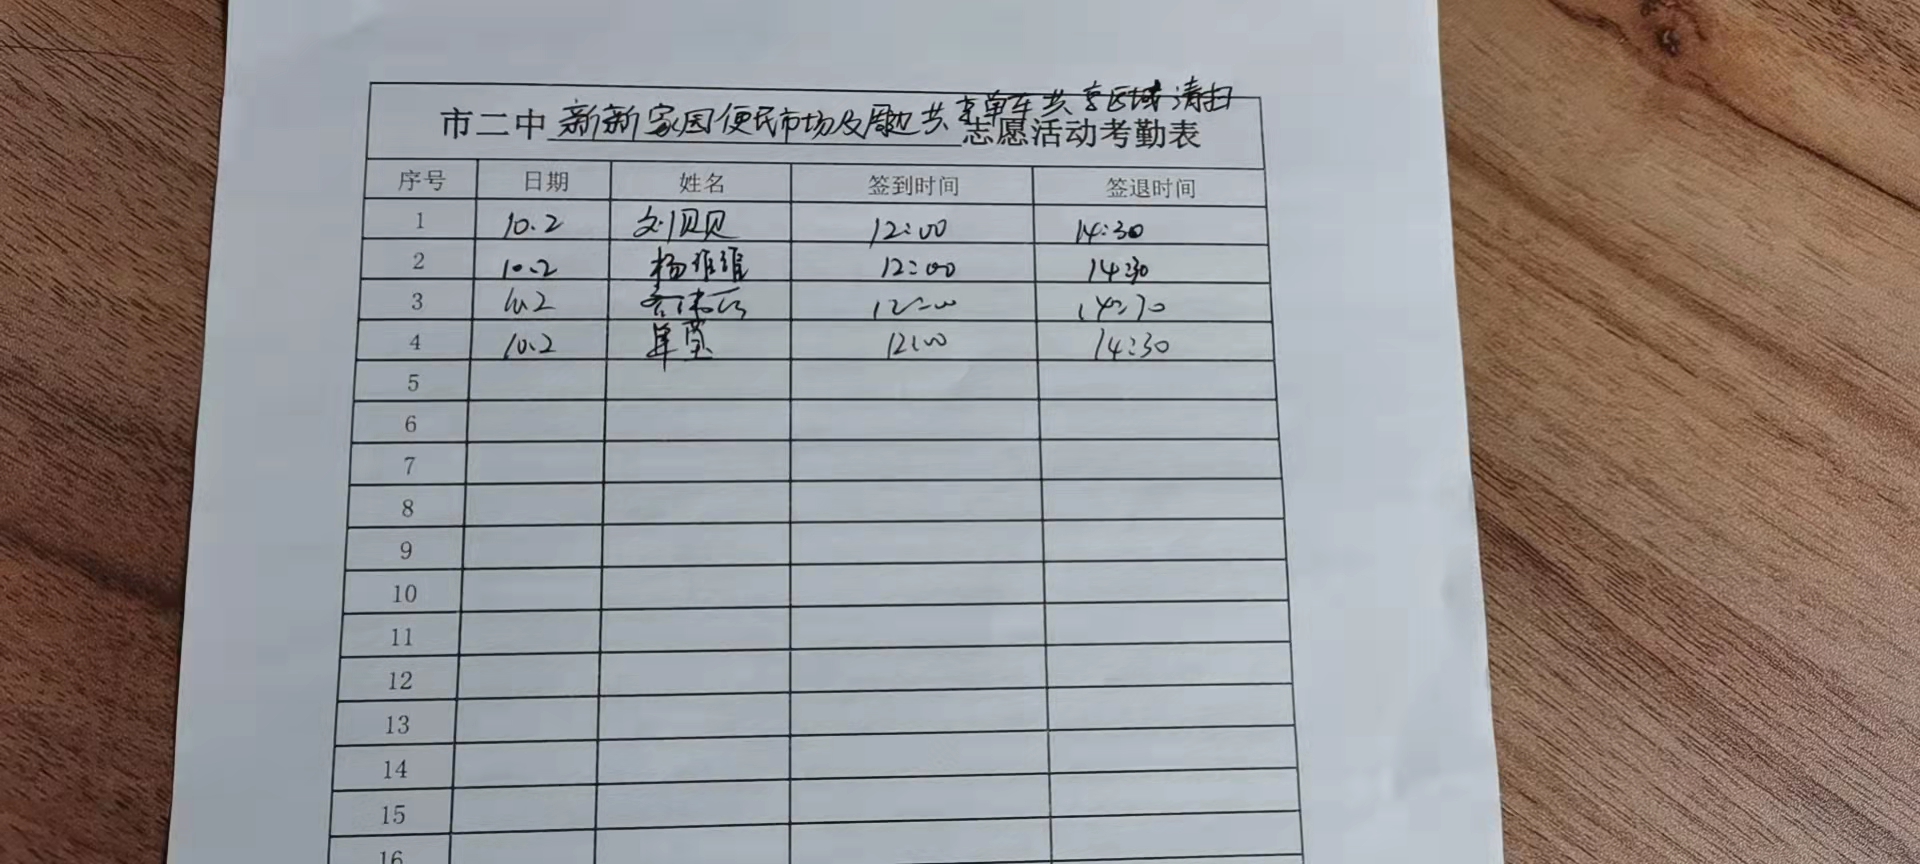 市二中新新家园便民市场及周边共享单车共享区域清扫志愿活动考勤表
序号 日期 姓名 签到时间 签退时间
1 10.2 刘贝贝 12:00 14:30
2 10.2 杨维维 12:00 14:30
3 10.2 12:00 14:30
4 10.2 单莹 12:00 14:30
5
6
7
8
9
10
11
12
13
14
15
16